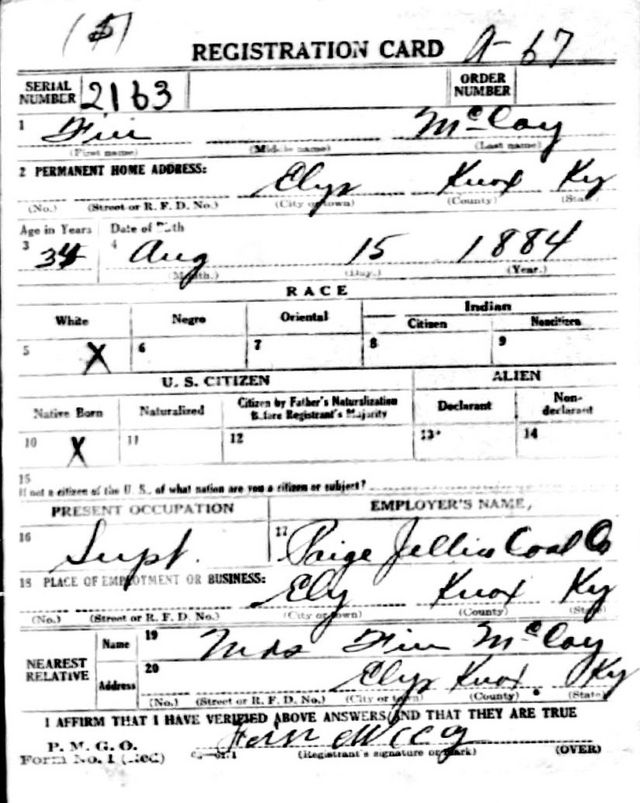 ($)
REGISTRATION CARD A-67
SERIAL NUMBER 2163 ORDER NUMBER
1 McCoy
(First name) (Middle name) (Last name)
2 PERMANENT HOME ADDRESS: Elys Knox Ky
(No.) (Street or R. F. D. No.) (City or town) (County) (State)
Age in Years Date of Birth
3 34 4 Aug 15 1884
(Month.) (Day.) (Year.)
RACE
White Negro Oriental Indian
Citizen Noncitizen
5 X 6 7 8 9
U. S. CITIZEN ALIEN
Native Born Naturalized Citizen by Father's Naturalization Before Registrant's Majority Declarant Non-declarant
10 X 11 12 13 14
15
If not a citizen of the U. S., of what nation are you a citizen or subject?
PRESENT OCCUPATION EMPLOYER'S NAME,
16 Supt. 17 Paige Jellico Coal Co
18 PLACE OF EMPLOYMENT OR BUSINESS:
Ely Knox Ky
(No.) (Street or R. F. D. No.) (City or town) (County) (State)
NEAREST RELATIVE
Name 19 Mrs McCoy
Address 20 Elys Knox Ky
(No.) (Street or R. F. D. No.) (City or town) (County) (State)
I AFFIRM THAT I HAVE VERIFIED ABOVE ANSWERS AND THAT THEY ARE TRUE
P. M. G. O.
Form No. 1 (Red) (Registrant's signature or mark) (OVER)